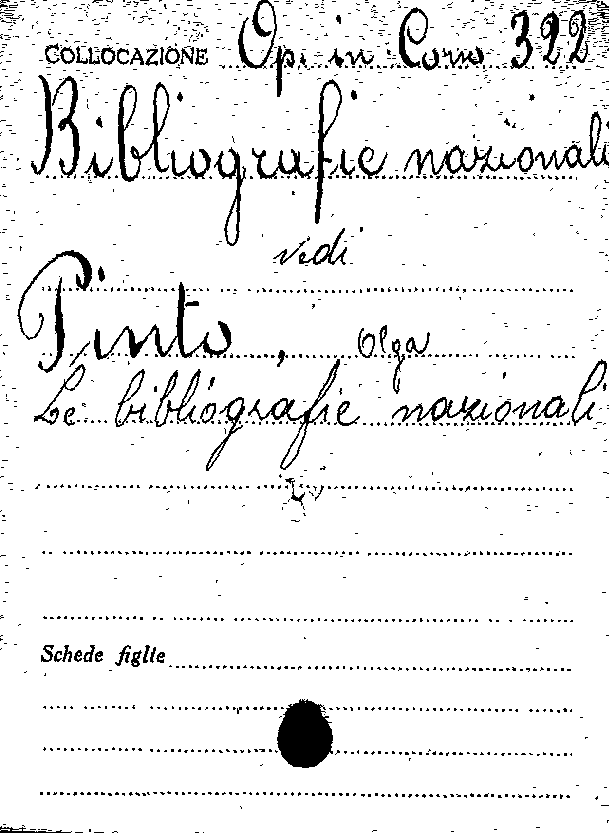 COLLOCAZIONE Op. in Corso 322
Bibliografie nazionali
vedi
Pinto, Olga
Le bibliografie nazionali
Schede figlie